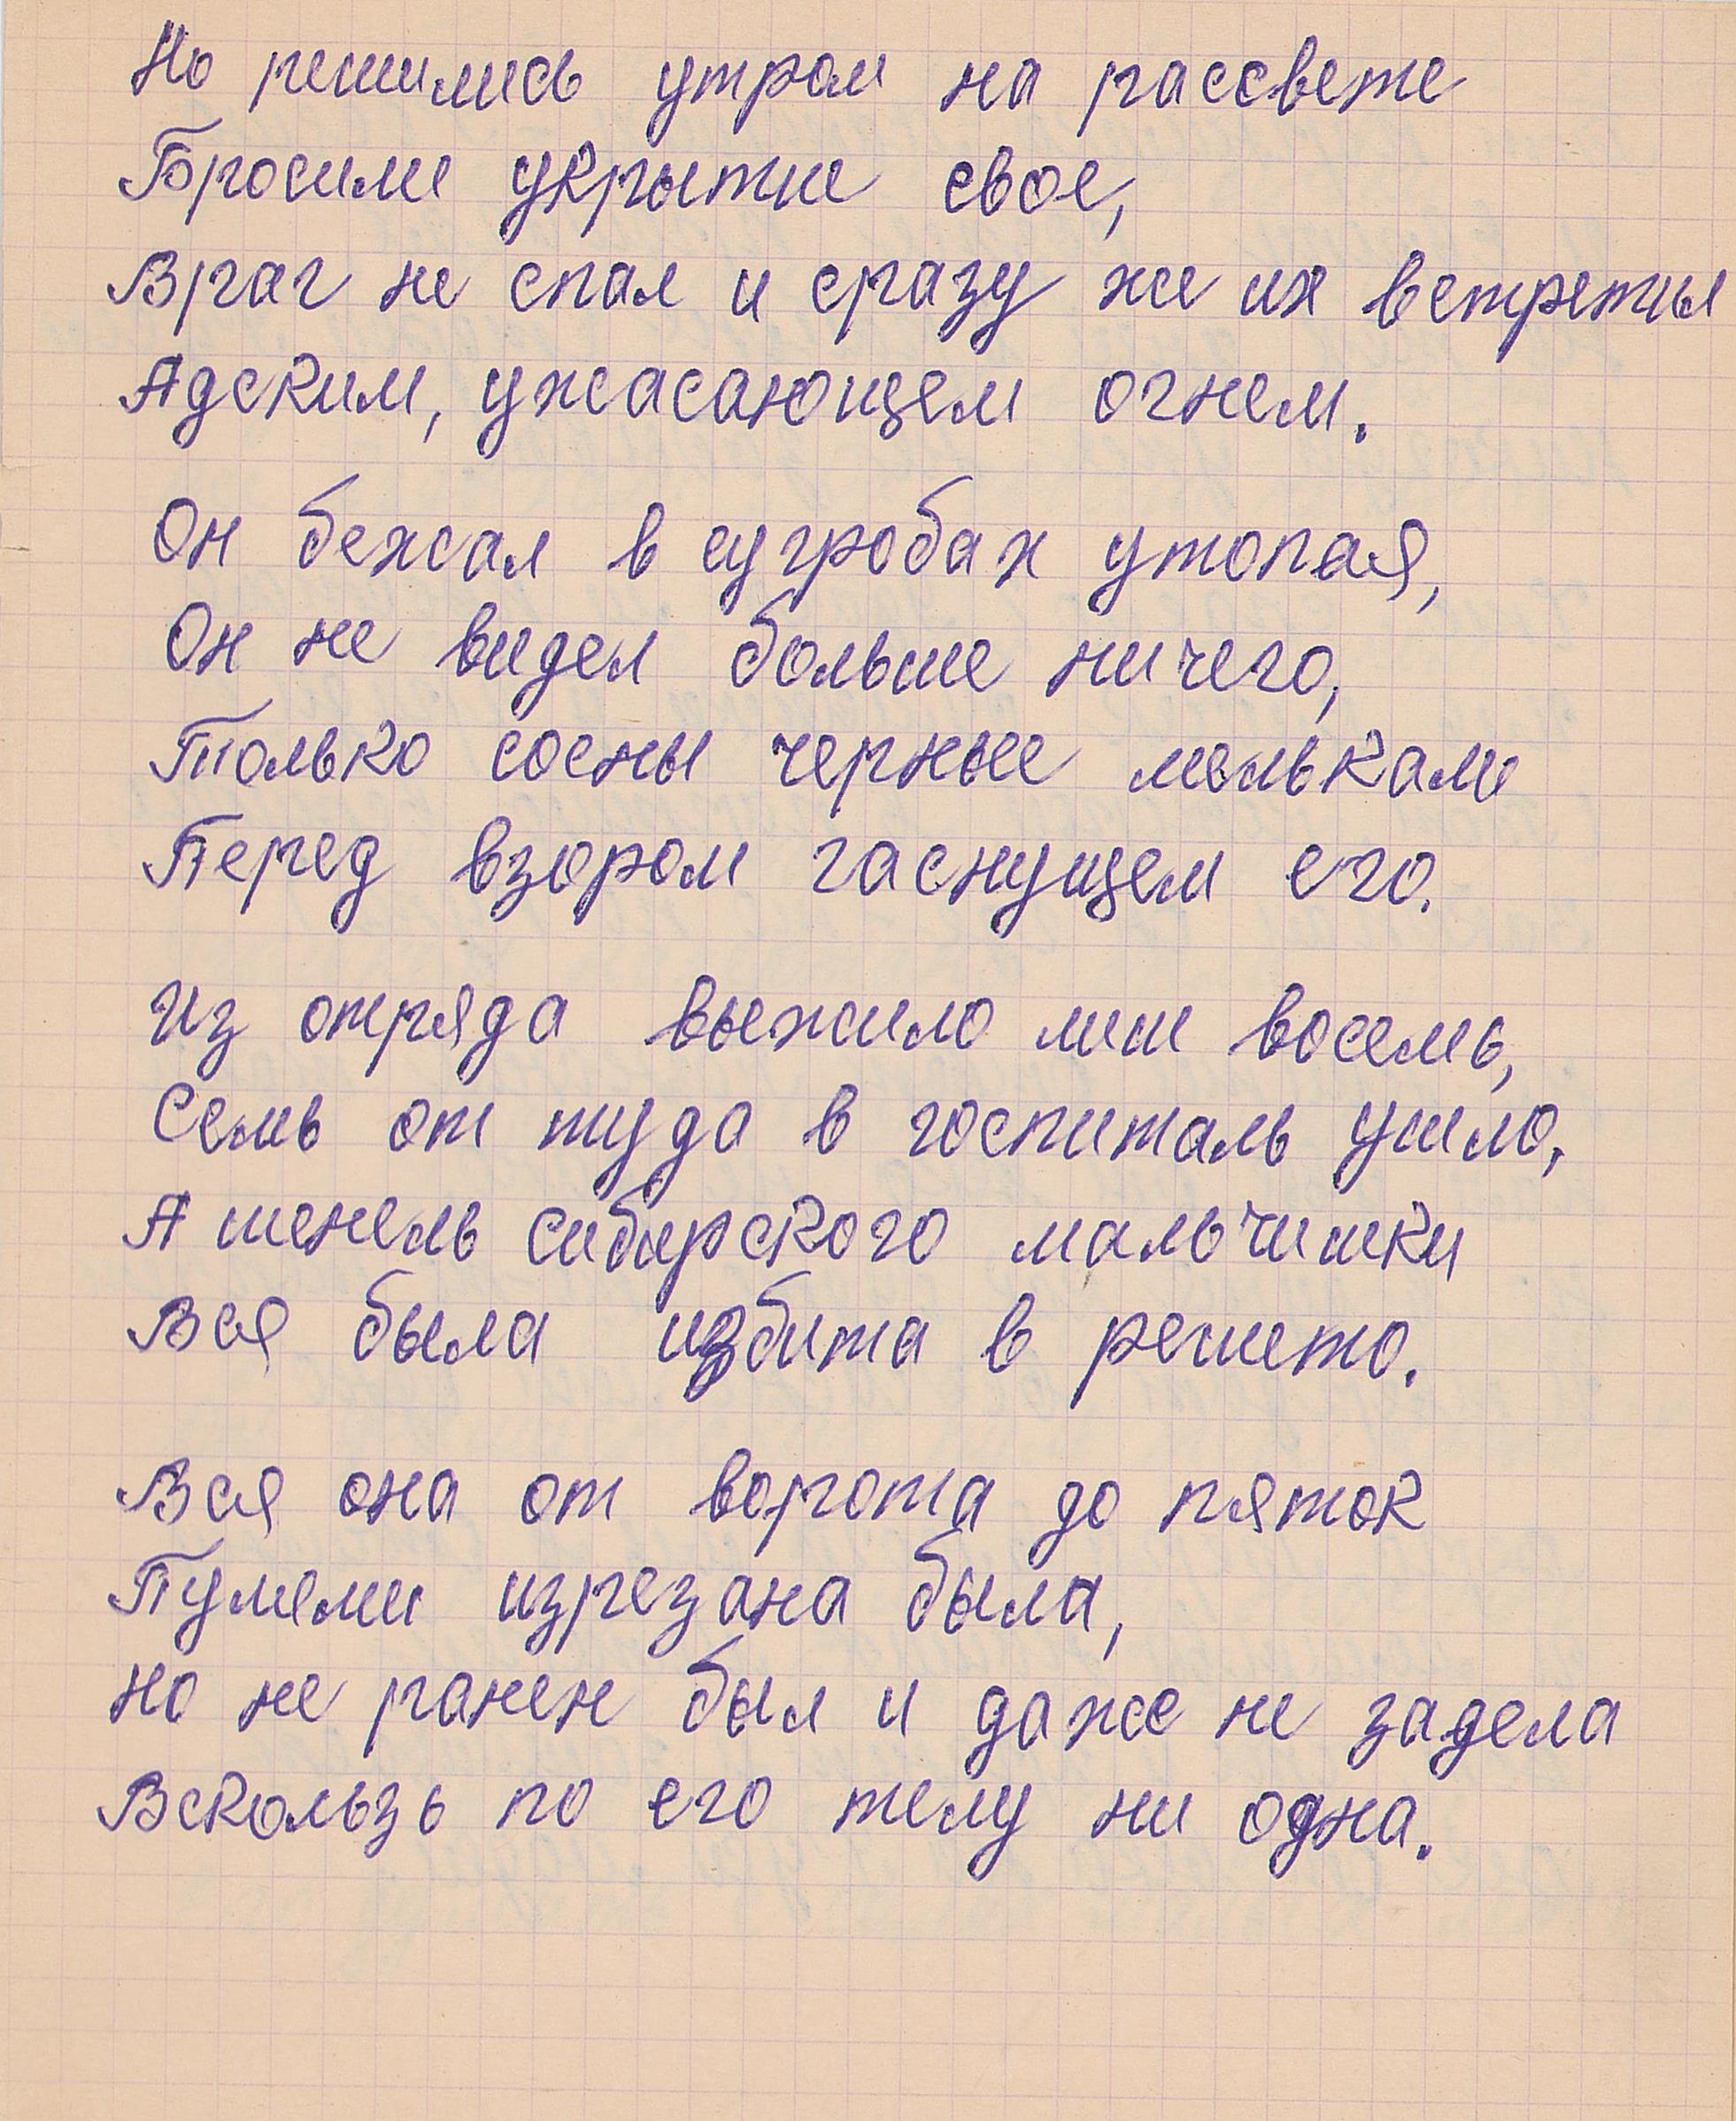 Но решились утром на рассвете
Бросили укрытие свое,
Враг не спал и сразу же их встретил
Адским, ужасающем огнем.
Он бежал в сугробах утопая,
Он не видел больше ничего,
Только сосны черные мелькали
Перед взором гаснущем его.
Из отряда выжило лиш восемь,
Семь от туда в госпиталь ушло,
А шенель сибирского мальчишки
Вся была избита в решето.
Вся она от ворота до пяток
Пулями изрезана была,
Но не ранен был и даже не задела
Вскользь по его телу ни одна.